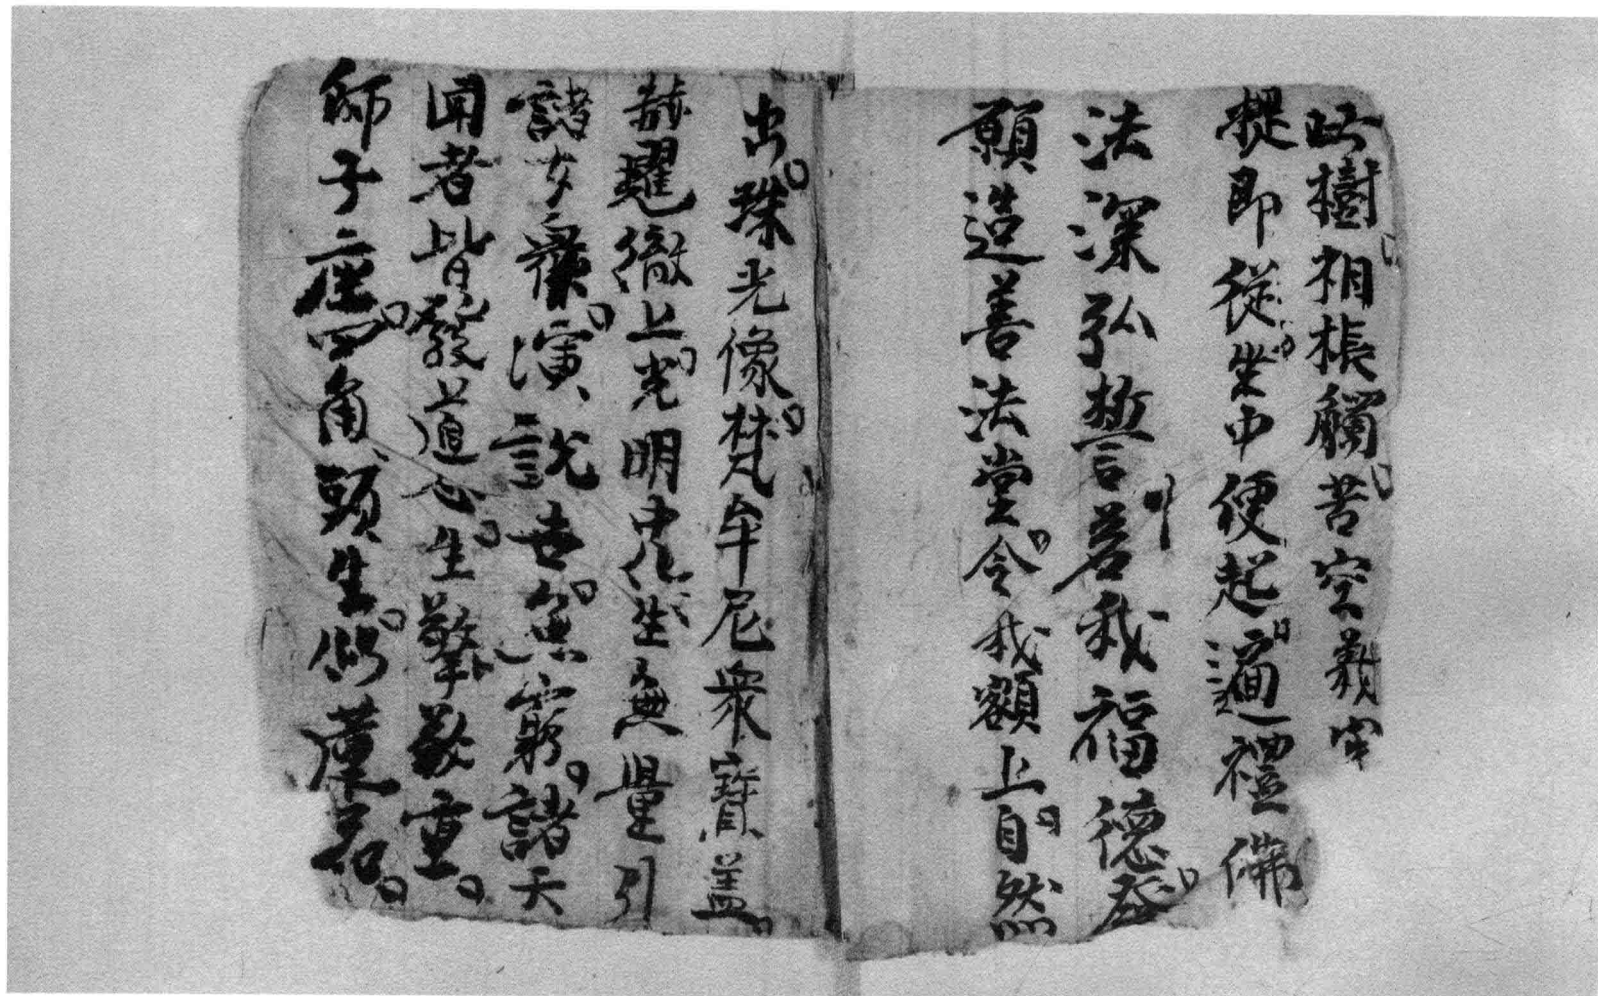 此樹相棖觸苦空義
提即從坐中便起遍禮佛
法深弘誓菩我福德發
願造善法堂令我額上自然
出珠光像梵牟尼衆寶盖
赫耀徹上光明中化生無量引
諸女演説無窮諸天
聞者皆發道心生擎敬重
師子座四角頭生似蓮花